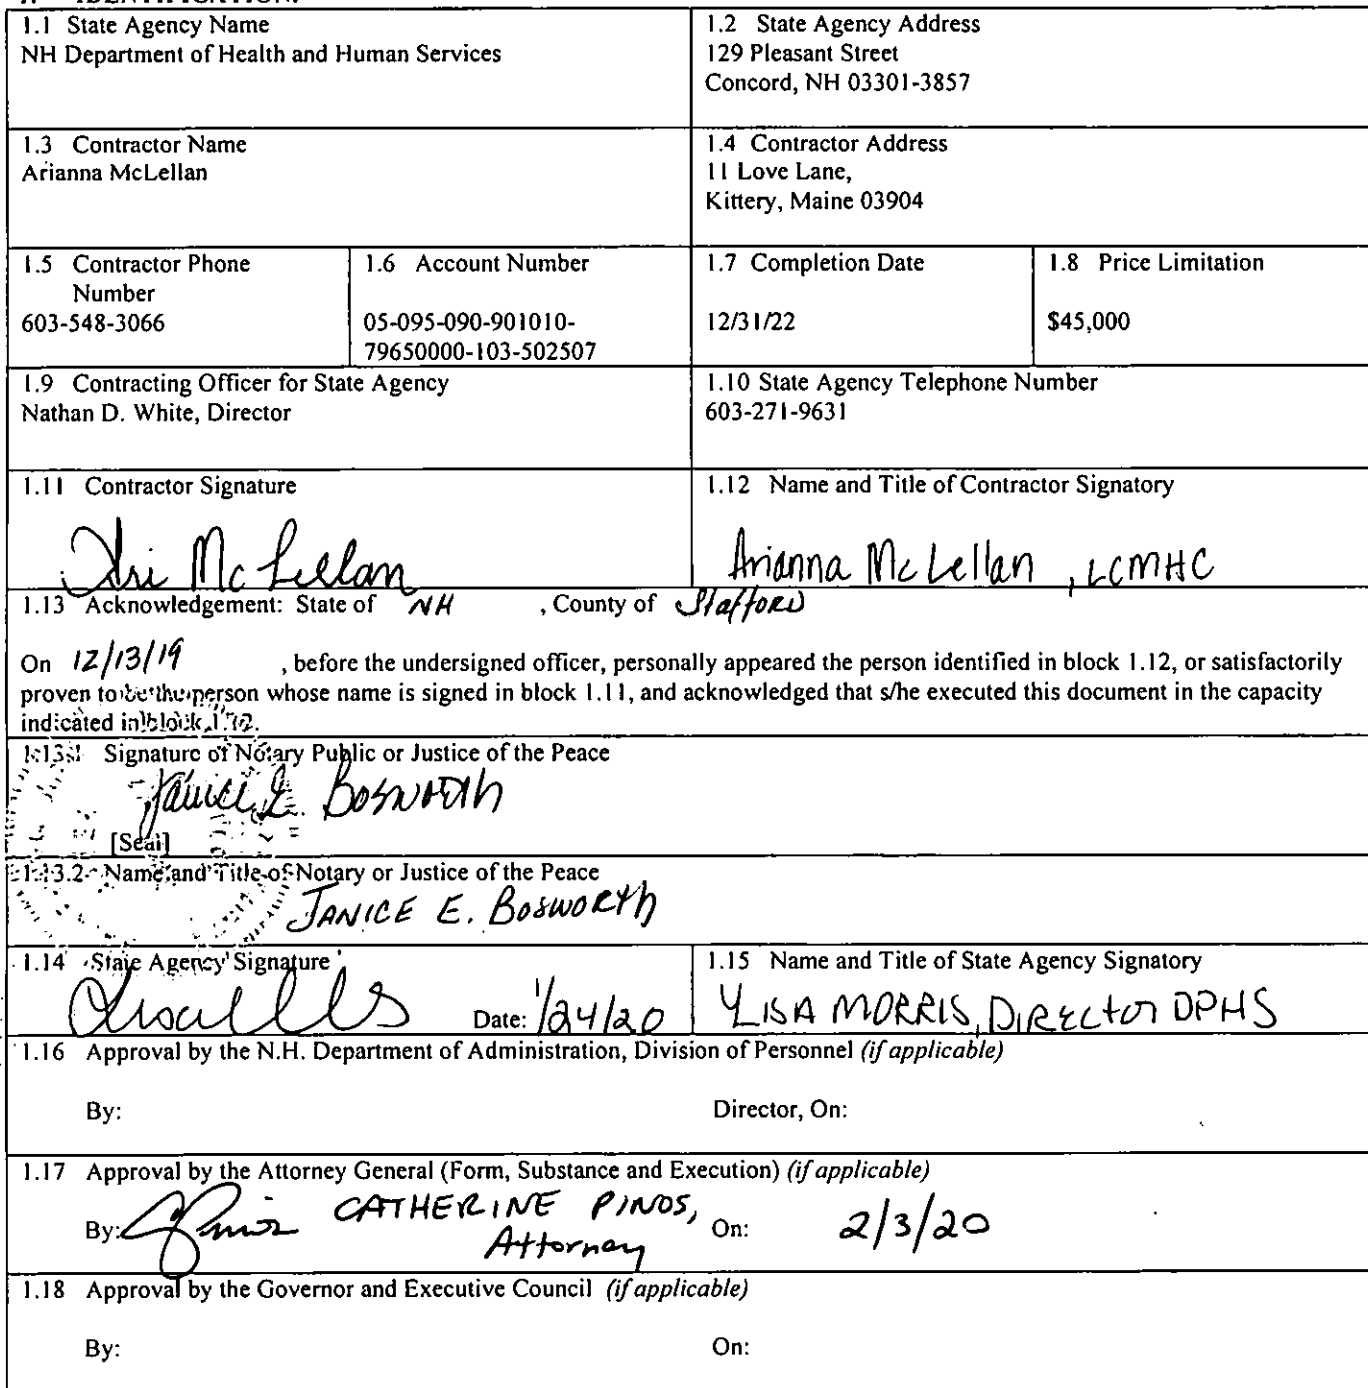 1.1 State Agency Name
NH Department of Health and Human Services
1.2 State Agency Address
129 Pleasant Street
Concord, NH 03301-3857
1.3 Contractor Name
Arianna McLellan
1.4 Contractor Address
11 Love Lane,
Kittery, Maine 03904
1.5 Contractor Phone
Number
603-548-3066
1.6 Account Number
05-095-090-901010-
79650000-103-502507
1.7 Completion Date
12/31/22
1.8 Price Limitation
$45,000
1.9 Contracting Officer for State Agency
Nathan D. White, Director
1.10 State Agency Telephone Number
603-271-9631
1.11 Contractor Signature
Ari McLellan
1.12 Name and Title of Contractor Signatory
Arianna McLellan , LCMHC
1.13 Acknowledgement: State of NH , County of Stafford
On 12/13/19 , before the undersigned officer, personally appeared the person identified in block 1.12, or satisfactorily
proven to be the person whose name is signed in block 1.11, and acknowledged that s/he executed this document in the capacity
indicated in block 1.12.
1.13.1 Signature of Notary Public or Justice of the Peace
Janice E. Bosworth
[Seal]
1.13.2 Name and Title of Notary or Justice of the Peace
JANICE E. BOSWORTH
1.14 State Agency Signature
Date: 1/24/20
1.15 Name and Title of State Agency Signatory
LISA MORRIS, DIRECTOR DPHS
1.16 Approval by the N.H. Department of Administration, Division of Personnel (if applicable)
By: Director, On:
1.17 Approval by the Attorney General (Form, Substance and Execution) (if applicable)
By: CATHERINE PINOS,
Attorney On: 2/3/20
1.18 Approval by the Governor and Executive Council (if applicable)
By: On: